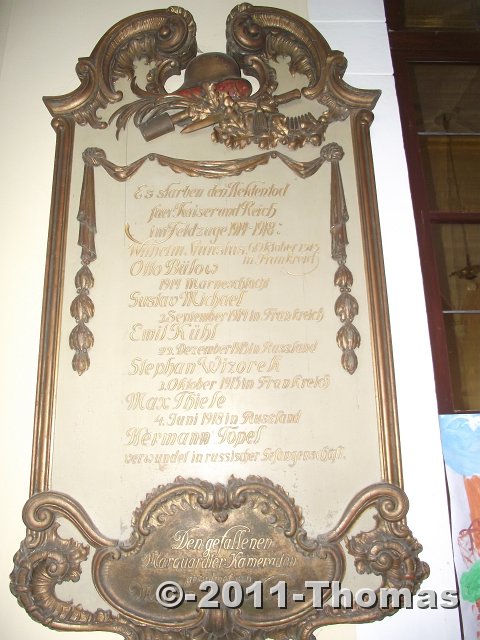 Es starben den Heldentod
fuer Kaiser und Reich
im Feldzuge 1914-1918:
Wilhelm Oktober 1915
in Frankreich
Otto Bülow
1914 Marneschlacht
Gustav Michael
September 1914 in Frankreich
Emil Kühl
23. Dezember 1915 in Russland
Stephan Wizorek
3. Oktober 1915 in Frankreich
Max Thiele
4. Juni 1918 in Russland
Hermann Topel
verwundet in russischer Gefangensch. gst.
Den gefallenen
Marquardter Kameraden
©-2011-Thomas